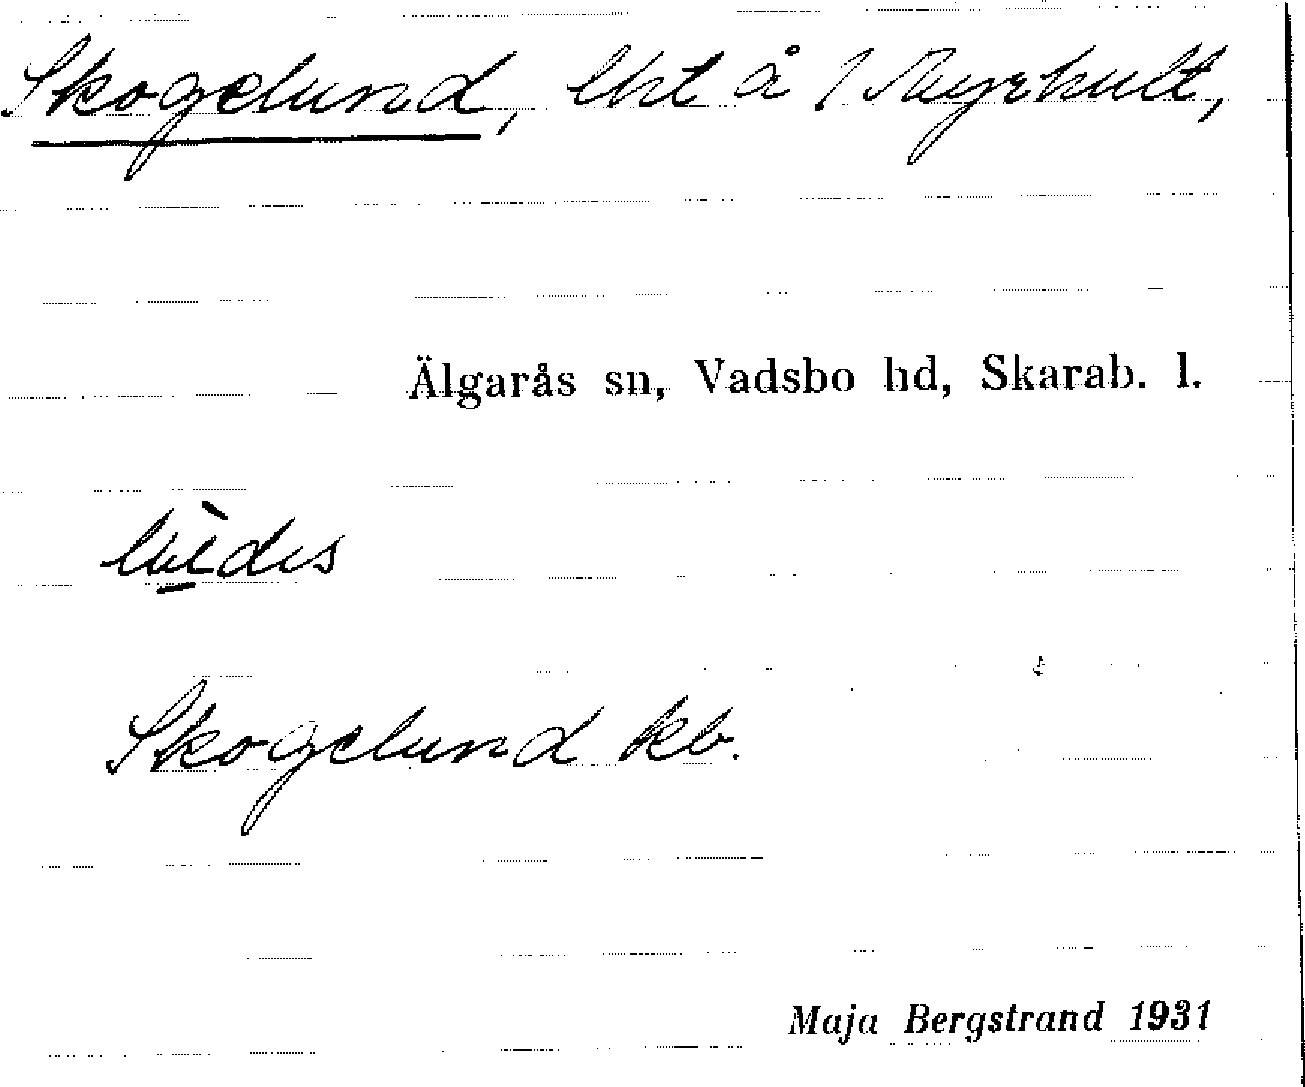 Skogelund, lht å 1 Myrhult,
Älgarås sn, Vadsbo hd, Skarab. l.
Skogelund kb.
Maja Bergstrand 1931